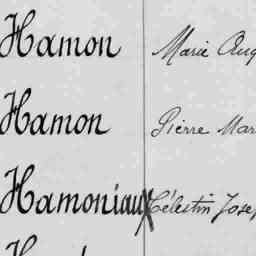 Hamon Marie Aug
Hamon Pierre Mar
Hamoniaux Célestin Josep